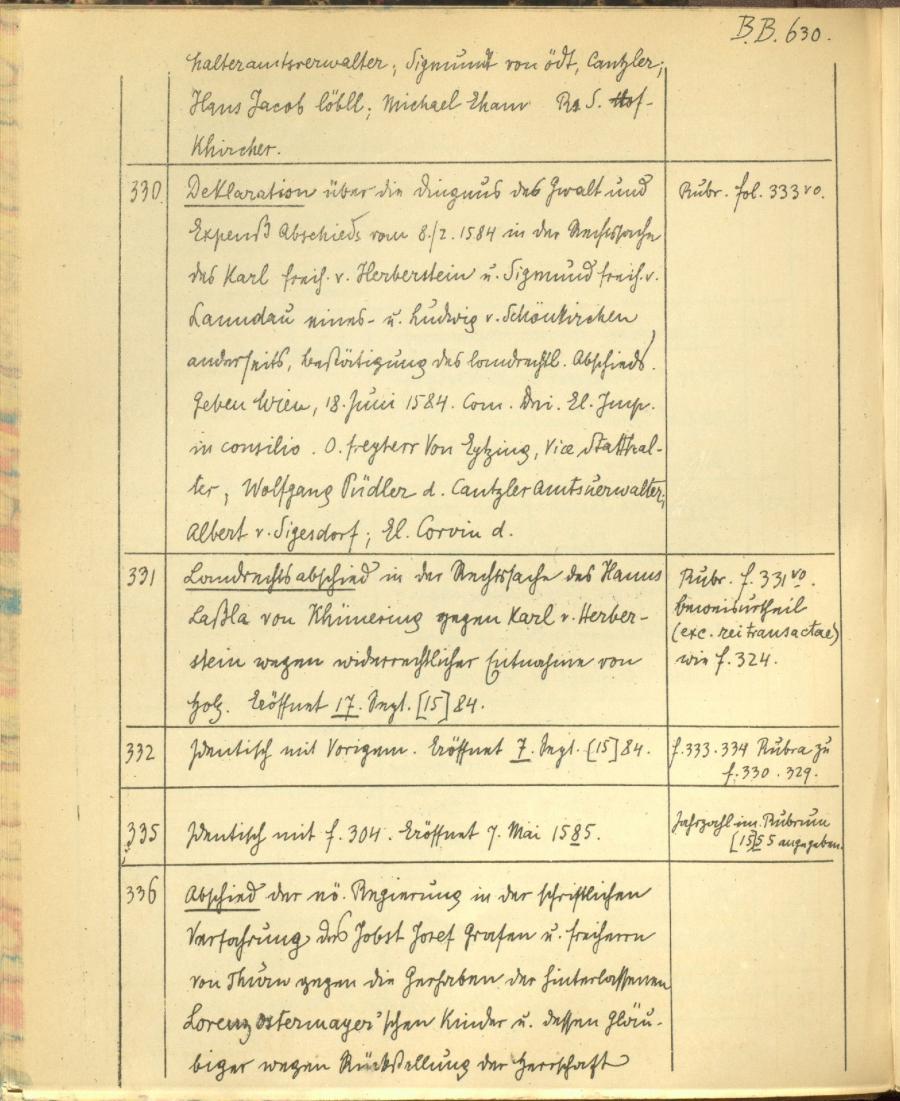 B.B. 630.
halteramtsverwalter; Sigmundt von ödt, Cantzler;
Hans Jacob löbll; Michael Eham R. S. Hof-
Khircher.
330 Deklaration über die Dingnus des Gwalt und
Expenß Abschieds vom 8./2. 1584 in der Rechtssache
des Karl freih. v. Herberstein u. Sigmund freih. v.
Lanndau eines- u. Ludwig v. Schönkirchen
anderseits, Bestätigung des landrechtl. Abschieds.
Geben Wien, 18. Juni 1584. Com. Dni. El. Imp.
in consilio. O. freyherr Von Eytzing, Vice Statthal-
ter, Wolfgang Püdler d. Cantzler Amtsuerwalter;
Albert v. Sigesdorf; El. Corvin d.
Rubr. fol. 333 vo.
331 Landrechtsabschied in der Rechtssache des Hanns
Laßla von Khüenring gegen Karl v. Herber-
stein wegen widerrechtlicher Entnahme von
Holz. Eröffnet 17. Sept. [15]84.
Rubr. f. 331 vo.
beweisurtheil
(exc. rei transactae)
wie f. 324.
332 Identisch mit Vorigem. Eröffnet 7. Sept. [15]84.
f. 333. 334 Rubra zu
f. 330. 329.
335 Identisch mit f. 304. Eröffnet 7. Mai 1585.
Jahrzahl im Rubrum
[15]55 angegeben.
336 Abschied der nö. Regierung in der schriftlichen
Verfahrung des Jobst Josef Grafen u. freiherrn
von Thurn gegen die Gerhaben der hinterlassenen
Lorenz Ostermayer'schen Kinder u. dessen Gläu-
biger wegen Rückstellung der Herrschaft